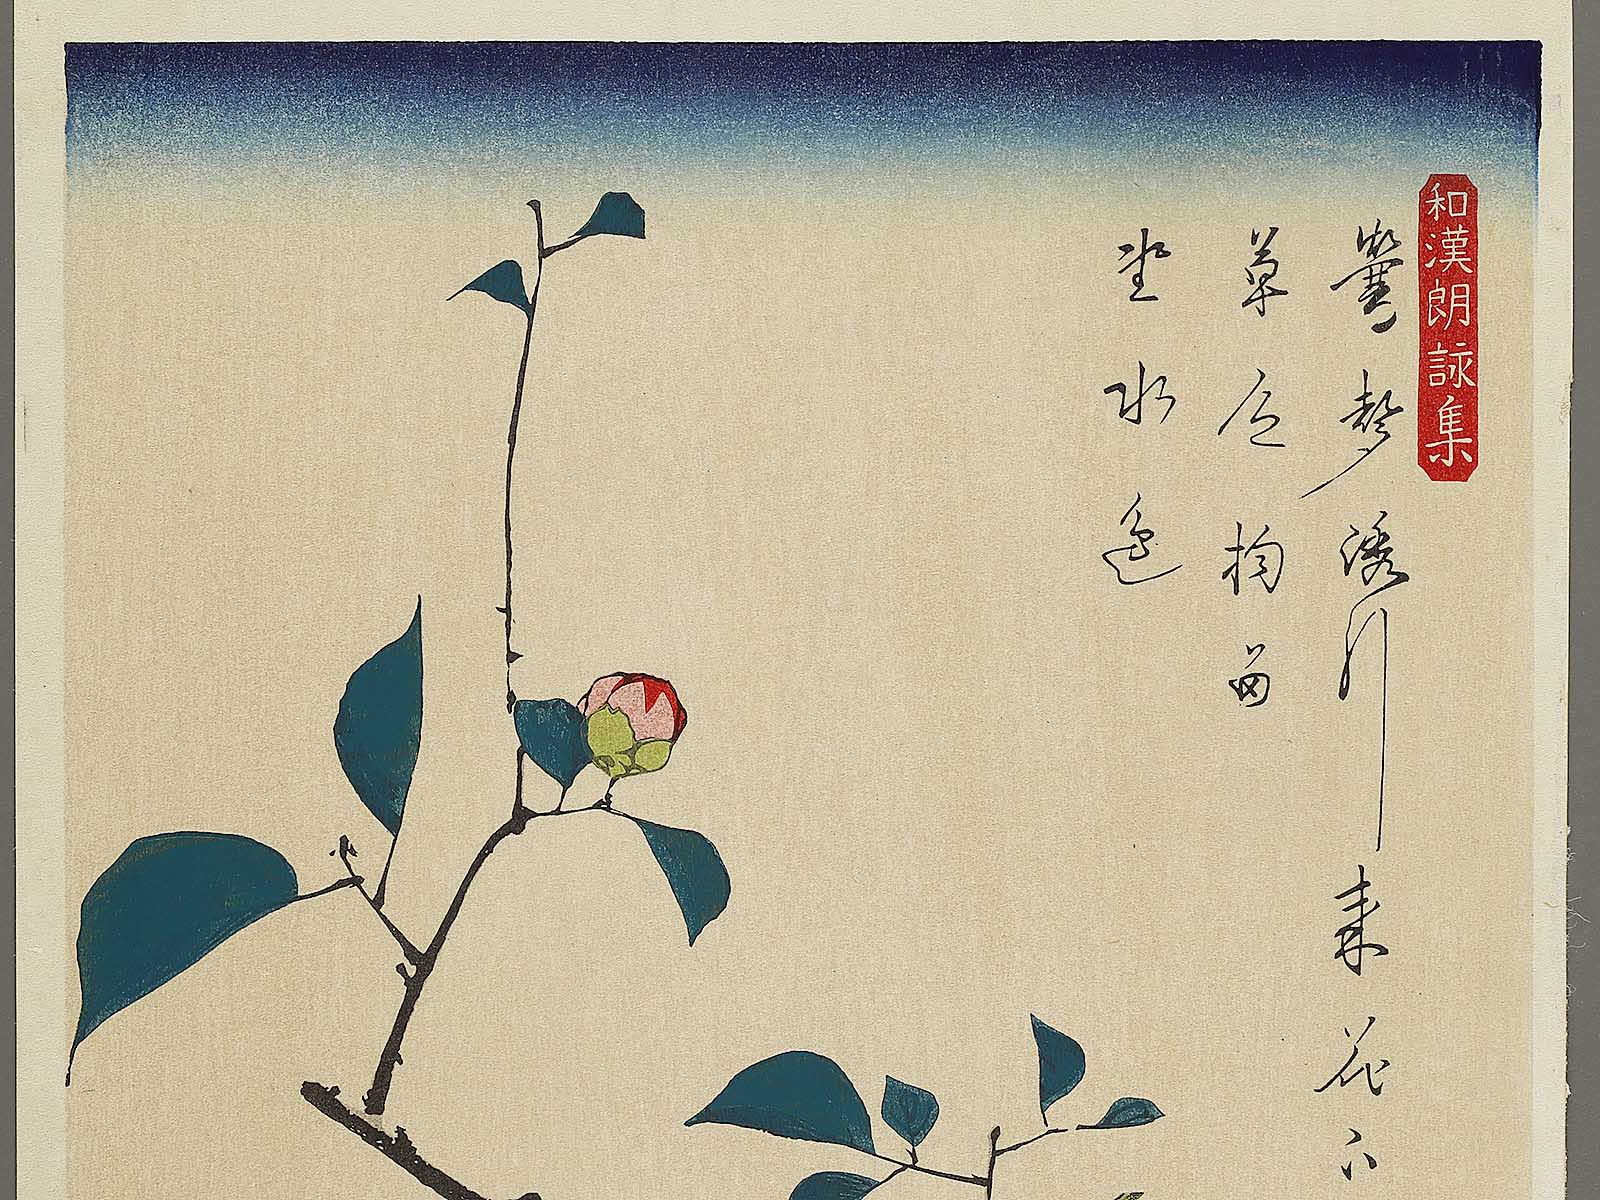 和漢朗詠集
鶯聲誘引来花下
草色拘留
坐水邊